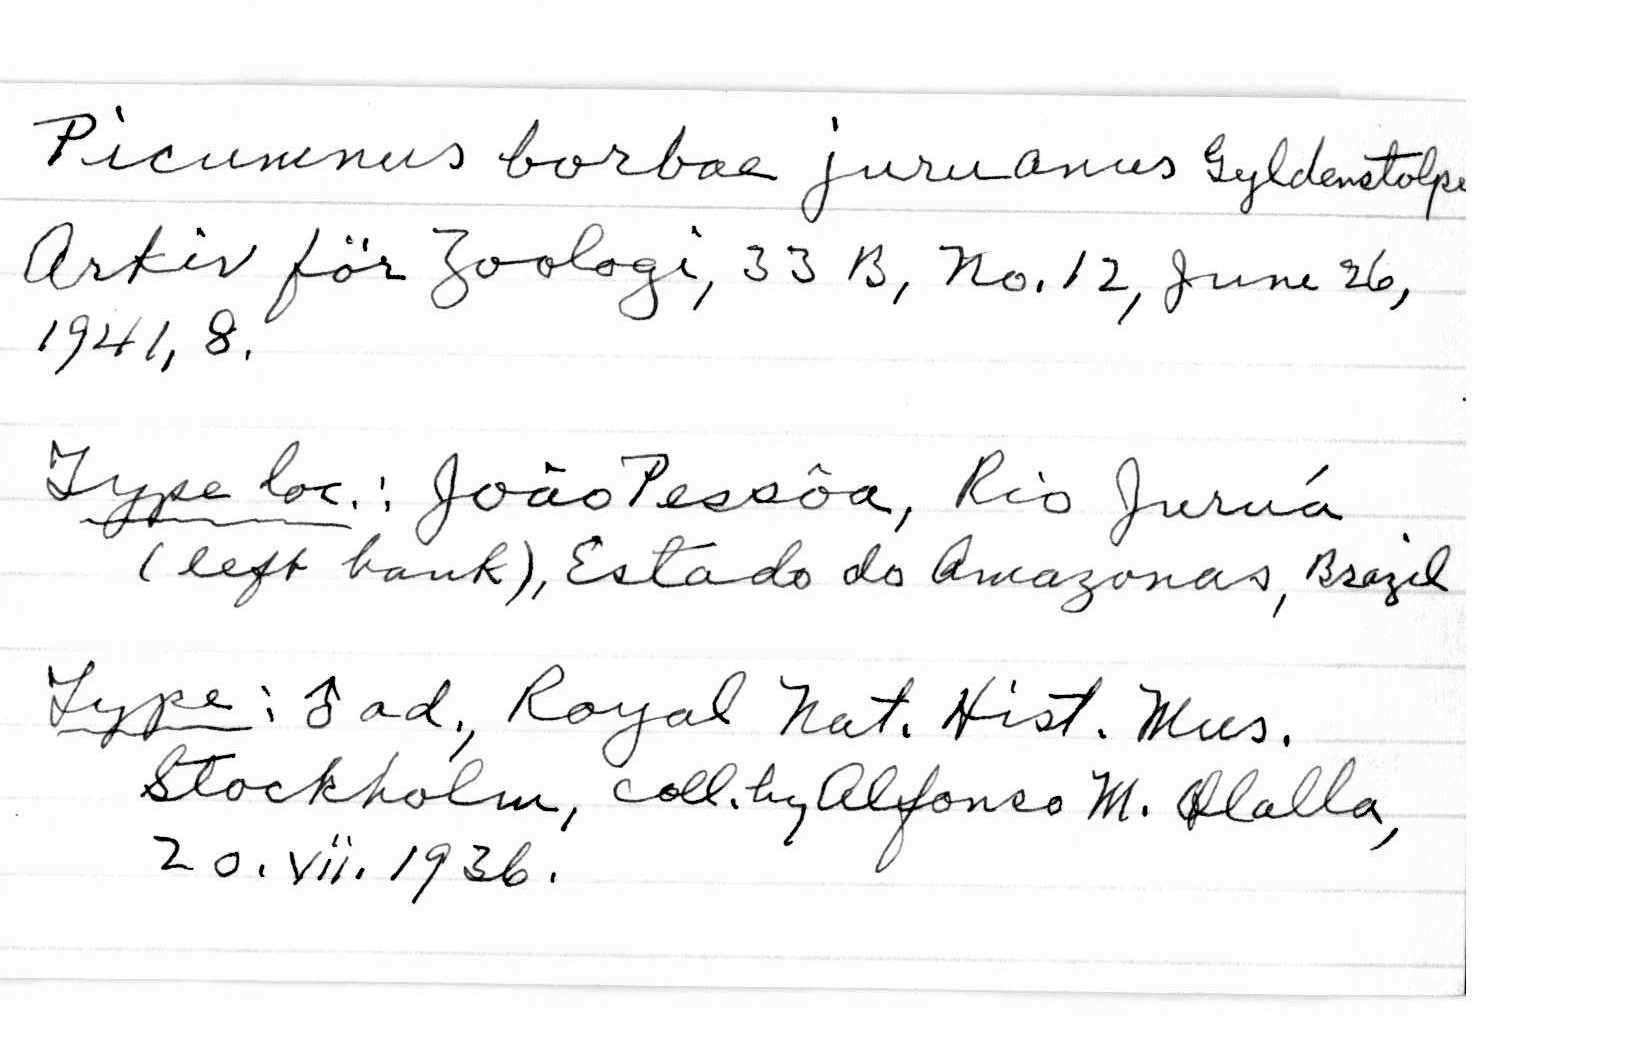 Picumnus borbae juruanus Gyldenstolpe
Arkiv för Zoologi, 33 B, No. 12, June 26,
1941, 8.
Type loc.: João Pessôa, Rio Juruá
(left bank), Estado do Amazonas, Brazil
Type: ♂ ad., Royal Nat. Hist. Mus.
Stockholm, coll. by Alfonso M. Olalla,
20. vii. 1936.